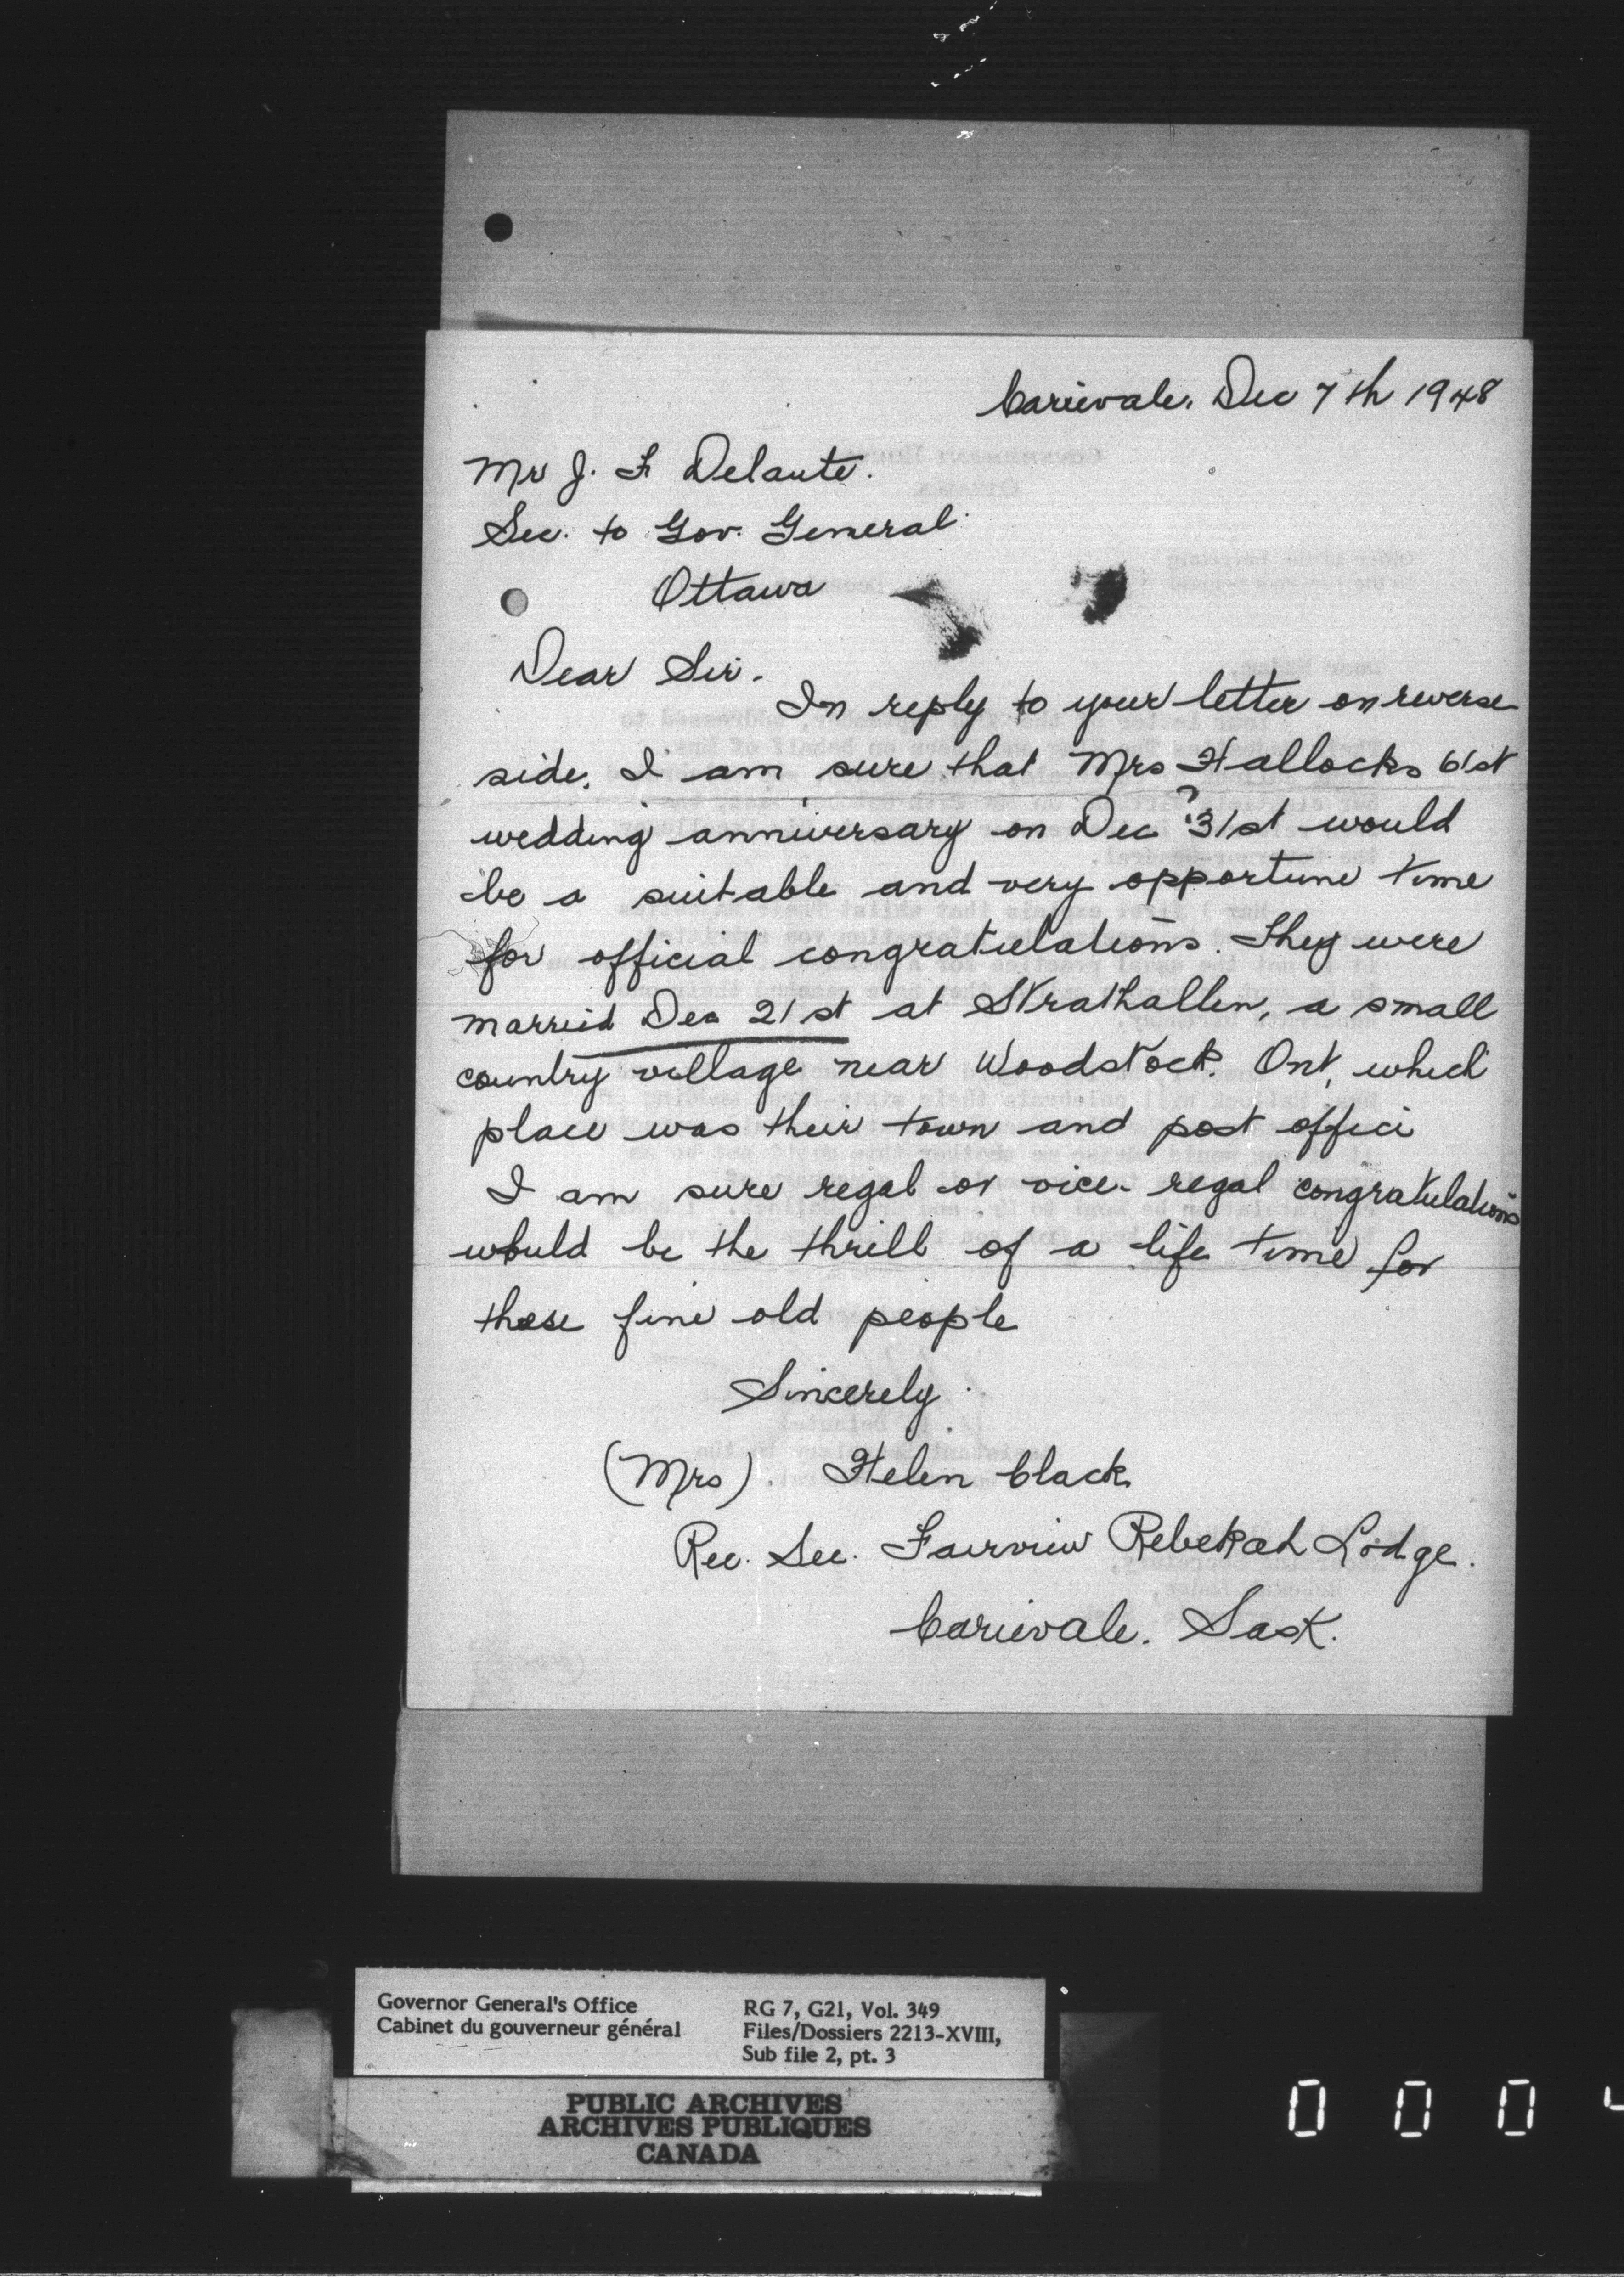 Carievale. Dec 7th 1948
Mr J. F Delaute.
Sec. to Gov. General
Ottawa
Dear Sir.
In reply to your letter on reverse
side. I am sure that Mrs Hallocks 61st
wedding anniversary on Dec ? 31st would
be a suitable and very opportune time
for official congratulations. They were
married Dec 21st at Strathallen, a small
country village near Woodstock. Ont, which
place was their town and post office
I am sure regal or vice-regal congratulations
would be the thrill of a life time for
these fine old people
Sincerely
(Mrs) Helen Clack
Rec. Sec. Fairview Rebekah Lodge.
Carievale. Sask.
Governor General's Office
Cabinet du gouverneur général
RG 7, G21, Vol. 349
Files/Dossiers 2213-XVIII,
Sub file 2, pt. 3
PUBLIC ARCHIVES
ARCHIVES PUBLIQUES
CANADA
0 0 0